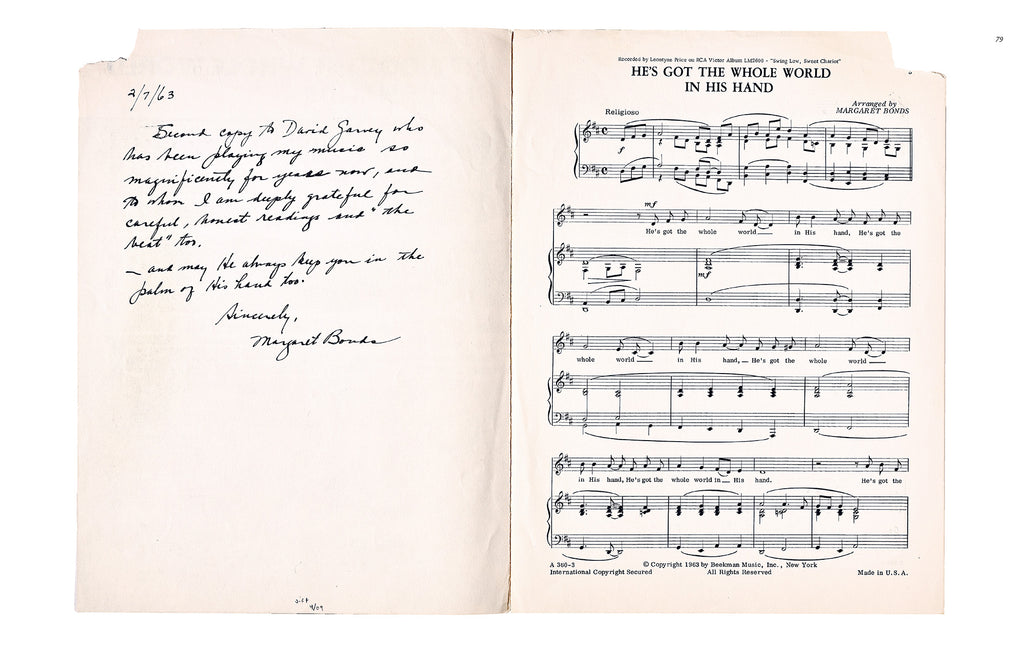 79
2/7/63
Second copy to David Garvey who
has been playing my music so
magnificently for years now, and
to whom I am deeply grateful for
careful, honest readings and "the
beat" too.
— and may He always keep you in the
palm of His hand too.
Sincerely,
Margaret Bonds
gift
9/09
Recorded by Leontyne Price on RCA Victor Album LM2600 - "Swing Low, Sweet Chariot"
HE'S GOT THE WHOLE WORLD
IN HIS HAND
Arranged by
MARGARET BONDS
Religioso
f
mf
He's got the whole world in His hand, He's got the
mf
whole world in His hand, He's got the whole world
in His hand, He's got the whole world in His hand. He's got the
A 360-3
© Copyright 1963 by Beekman Music, Inc., New York
International Copyright Secured All Rights Reserved Made in U.S.A.